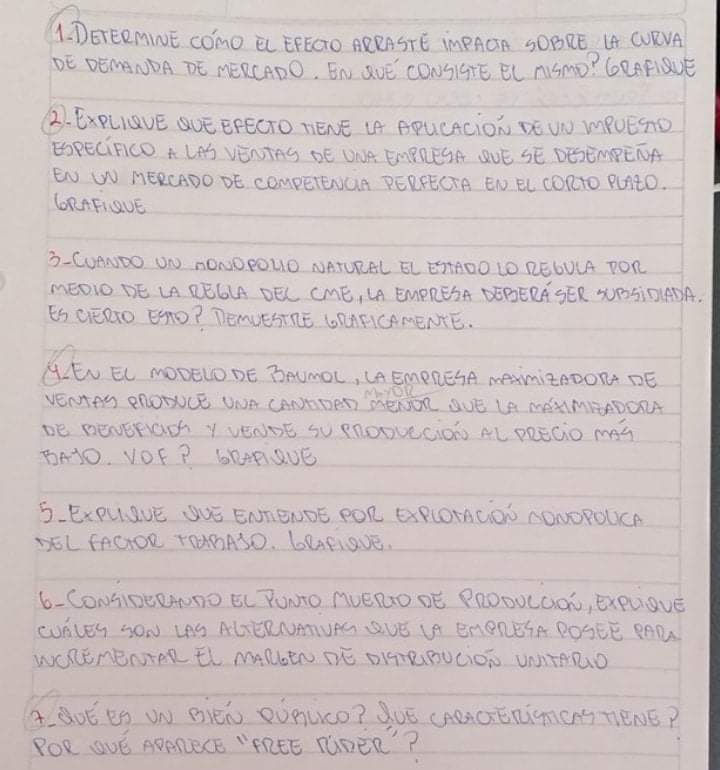 1-DETERMINE CÓMO EL EFECTO ARRASTE IMPACTA SOBRE LA CURVA
DE DEMANDA DE MERCADO. EN QUÉ CONSISTE EL MISMO? GRAFIQUE
2-EXPLIQUE QUE EFECTO TIENE LA APLICACIÓN DE UN IMPUESTO
ESPECÍFICO A LAS VENTAS DE UNA EMPRESA QUE SE DESEMPEÑA
EN UN MERCADO DE COMPETENCIA PERFECTA EN EL CORTO PLAZO.
GRAFIQUE
3-CUANDO UN MONOPOLIO NATURAL EL ESTADO LO REGULA POR
MEDIO DE LA REGLA DEL CME, LA EMPRESA DEBERÁ SER SUBSIDIADA.
ES CIERTO ESTO? DEMUESTRE GRAFICAMENTE.
4-EN EL MODELO DE BAUMOL, LA EMPRESA MAXIMIZADORA DE
MAYOR
VENTAS PRODUCE UNA CANTIDAD MENOR QUE LA MÁXIMIZADORA
DE BENEFICIOS Y VENDE SU PRODUCCIÓN AL PRECIO MÁS
BAJO. V O F? GRAFIQUE
5-EXPLIQUE QUE ENTIENDE POR EXPLOTACIÓN MONOPOLICA
DEL FACTOR TRABAJO. GRAFIQUE.
6-CONSIDERANDO EL PUNTO MUERTO DE PRODUCCIÓN, EXPLIQUE
CUÁLES SON LAS ALTERNATIVAS QUE LA EMPRESA POSEE PARA
INCREMENTAR EL MARGEN DE DISTRIBUCIÓN UNITARIO
7-QUÉ ES UN BIEN PÚBLICO? QUE CARACTERÍSTICAS TIENE?
POR QUÉ APARECE "FREE RIDER"?